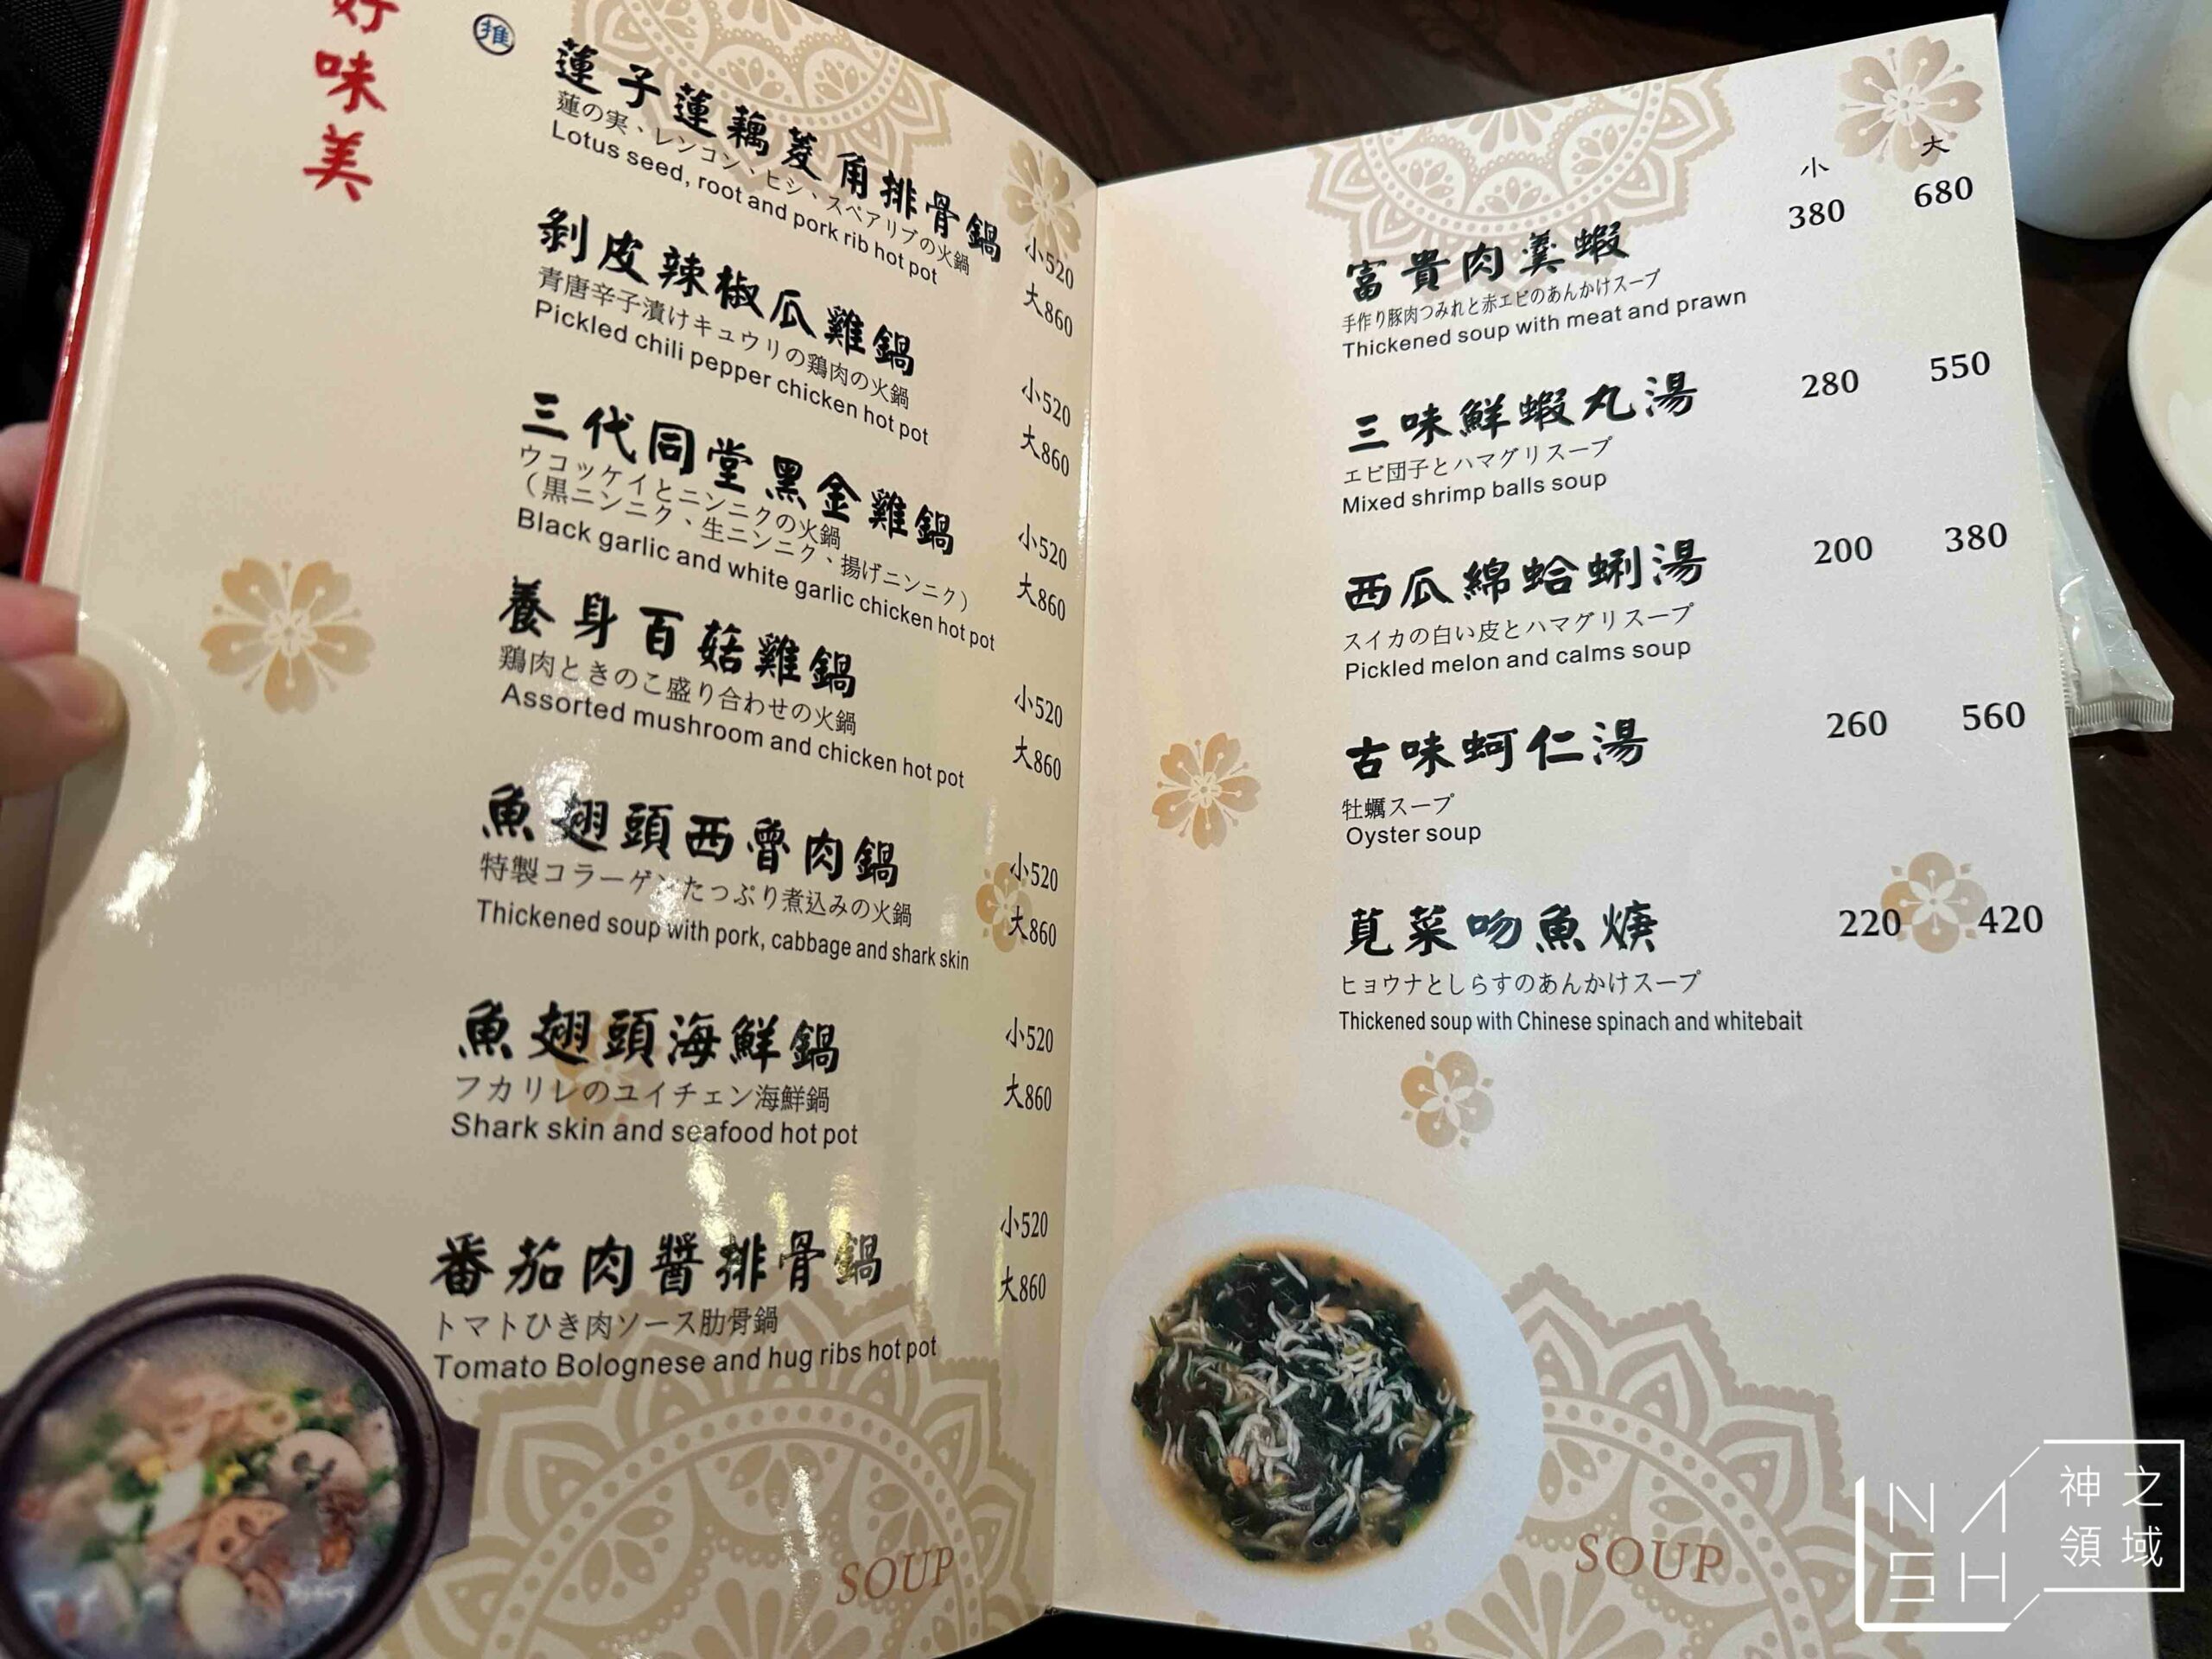 好味美
推
蓮子蓮藕菱角排骨鍋
蓮の実、レンコン、ヒシ、スペアリブの火鍋
Lotus seed, root and pork rib hot pot
小520
大860
剝皮辣椒瓜雞鍋
青唐辛子漬けキュウリの鶏肉の火鍋
Pickled chili pepper chicken hot pot
小520
大860
三代同堂黑金雞鍋
ウコッケイとニンニクの火鍋
（黒ニンニク、生ニンニク、揚げニンニク）
Black garlic and white garlic chicken hot pot
小520
大860
養身百菇雞鍋
鶏肉ときのこ盛り合わせの火鍋
Assorted mushroom and chicken hot pot
小520
大860
魚翅頭西魯肉鍋
特製コラーゲンたっぷり煮込みの火鍋
Thickened soup with pork, cabbage and shark skin
小520
大860
魚翅頭海鮮鍋
フカリレのユイチェン海鮮鍋
Shark skin and seafood hot pot
小520
大860
番茄肉醬排骨鍋
トマトひき肉ソース肋骨鍋
Tomato Bolognese and hug ribs hot pot
小520
大860
SOUP
小 大
富貴肉羹蝦 380 680
手作り豚肉つみれと赤エビのあんかけスープ
Thickened soup with meat and prawn
三味鮮蝦丸湯 280 550
エビ団子とハマグリスープ
Mixed shrimp balls soup
西瓜綿蛤蜊湯 200 380
スイカの白い皮とハマグリスープ
Pickled melon and calms soup
古味蚵仁湯 260 560
牡蠣スープ
Oyster soup
莧菜吻魚焿 220 420
ヒョウナとしらすのあんかけスープ
Thickened soup with Chinese spinach and whitebait
SOUP
NASH
神之領域